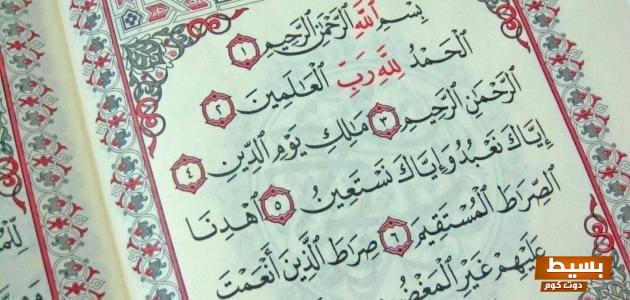 بِسْمِ ٱللَّهِ ٱلرَّحْمَٰنِ ٱلرَّحِيمِ ١
ٱلْحَمْدُ لِلَّهِ رَبِّ ٱلْعَٰلَمِينَ ٢
ٱلرَّحْمَٰنِ ٱلرَّحِيمِ ٣ مَٰلِكِ يَوْمِ ٱلدِّينِ ٤
إِيَّاكَ نَعْبُدُ وَإِيَّاكَ نَسْتَعِينُ ٥ ٱهْدِنَا
ٱلصِّرَٰطَ ٱلْمُسْتَقِيمَ ٦ صِرَٰطَ ٱلَّذِينَ أَنْعَمْتَ
عَلَيْهِمْ غَيْرِ
بسيط
دوت كوم